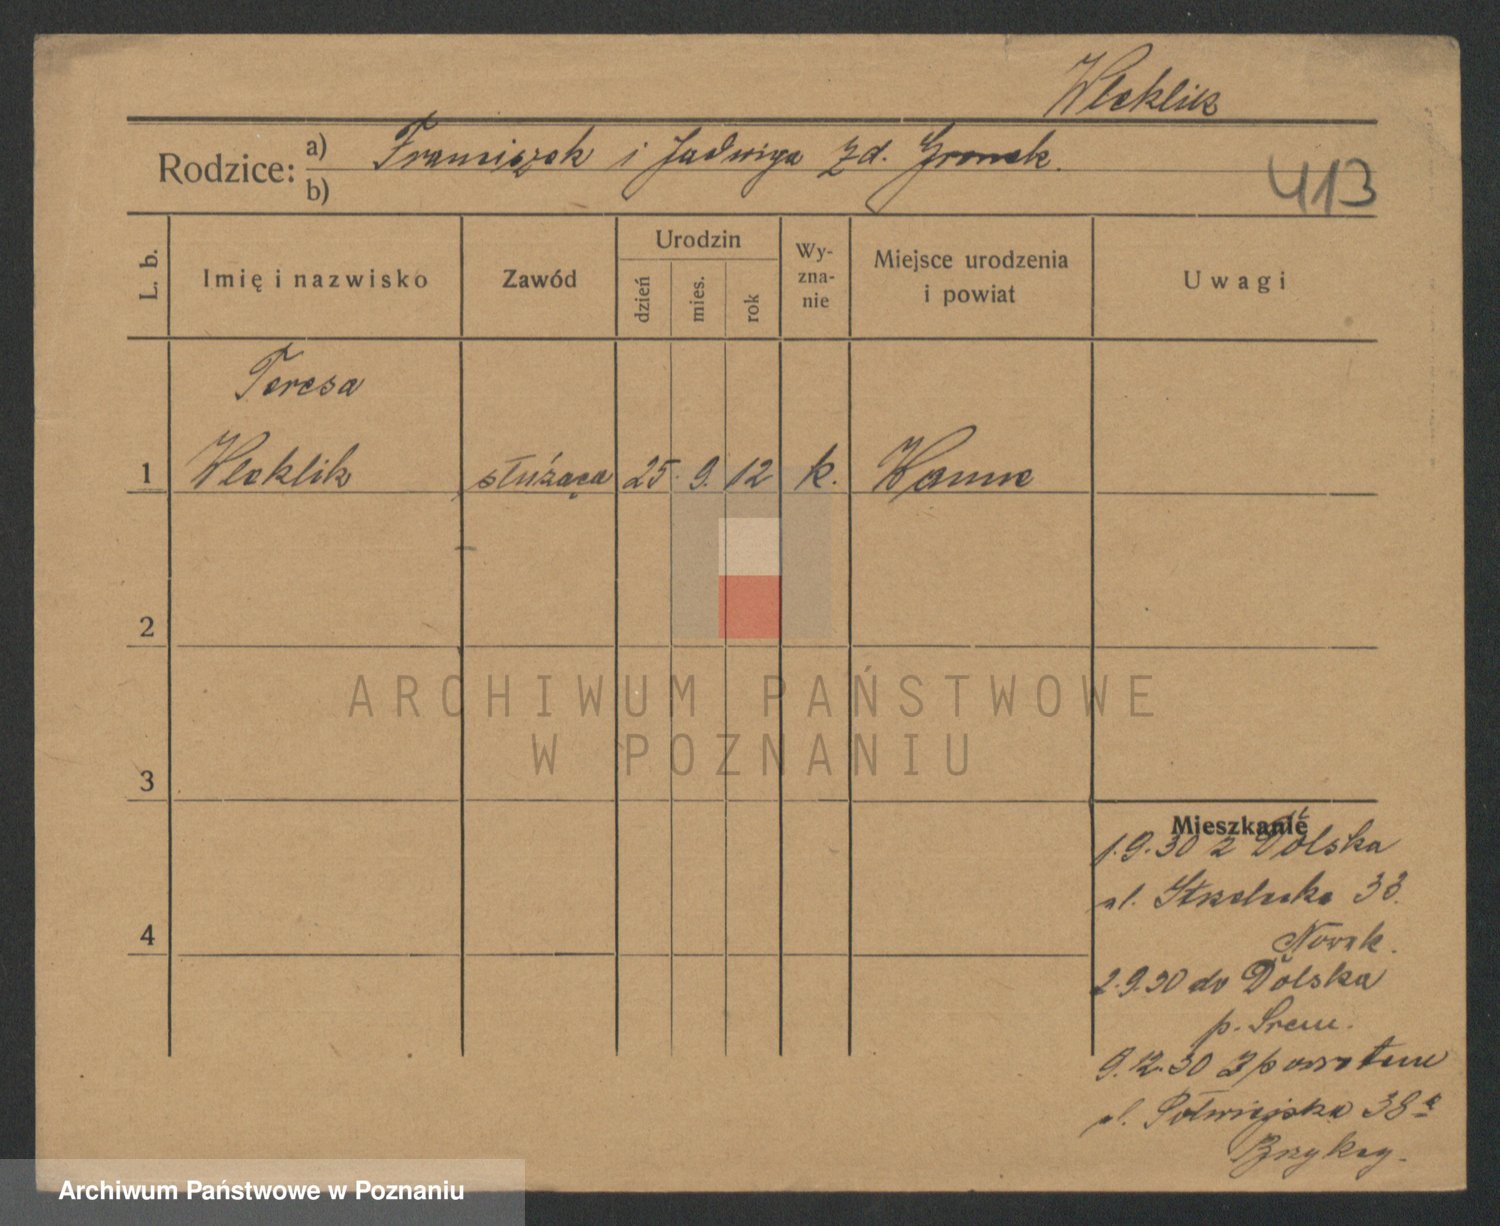 Weklik
Rodzice: a) Franciszek i Jadwiga zd. Gronek.
b)
413
L. b.
Imię i nazwisko
Zawód
Urodzin
dzień
mies.
rok
Wy-
zna-
nie
Miejsce urodzenia
i powiat
Uwagi
Teresa
1 Weklik służąca 25. 9. 12 k. Wanne
2
3
4
ARCHIWUM PAŃSTWOWE
W POZNANIU
Mieszkanie
1.9.30 z Dolska
ul. Strzelecka 33.
Nowak.
2.9.30 do Dolska
p. Śrem.
9.12.30 z powrotem
ul. Półwiejska 38a
Archiwum Państwowe w Poznaniu